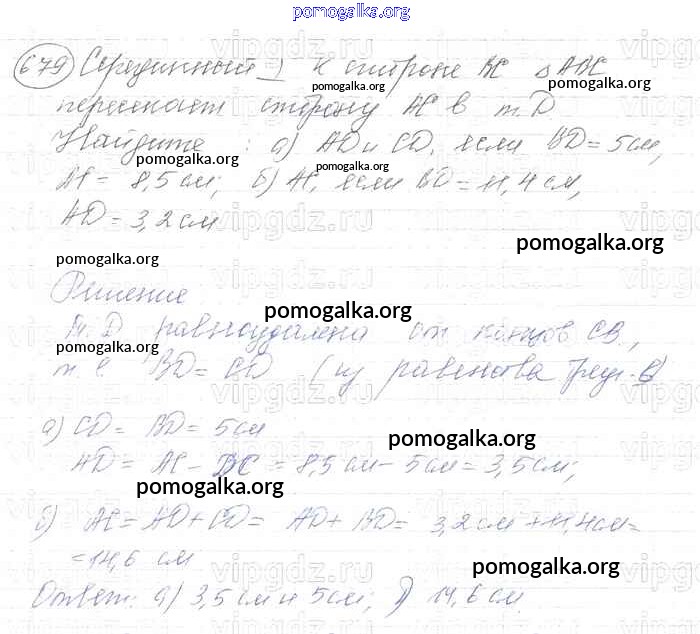 pomogalka.org
679 Серединный ⊥ к стороне BC △ABC
pomogalka.org pomogalka.org
пересекает сторону AC в т. D
Найдите: а) AD и CD, если BD = 5см,
pomogalka.org pomogalka.org
AC = 8,5 см; б) AC, если BD = 11,4 см,
AD = 3,2 см
pomogalka.org
pomogalka.org
Решение
pomogalka.org
Т. D равноудалена от концов CB,
pomogalka.org
т. е. BD = CD (из равенства треуг-в)
а) CD = BD = 5 см
pomogalka.org
AD = AC - DC = 8,5 см - 5 см = 3,5 см;
pomogalka.org
б) AC = AD + CD = AD + BD = 3,2 см + 11,4 см =
= 14,6 см
pomogalka.org
Ответ: а) 3,5 см и 5 см; б) 14,6 см.